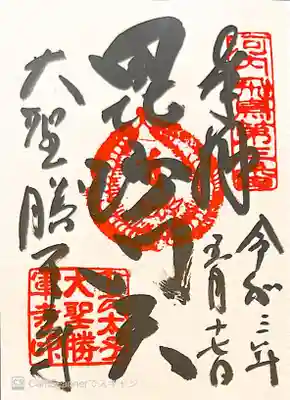 奉拝
令和三年
五月十七日
毘沙門天
大聖勝軍寺
太子
大聖勝
軍寺印
CS CamScannerでスキャン